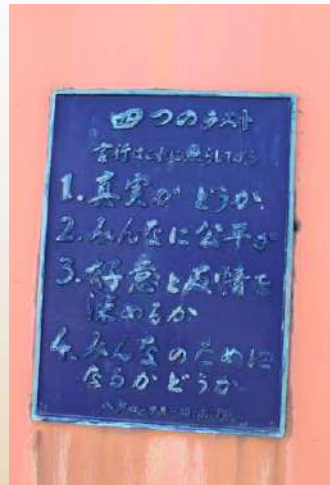 四つのテスト
言行はこれに照らしてから
1.真実かどうか
2.みんなに公平か
3.好意と友情を
深めるか
4.みんなのために
なるかどうか